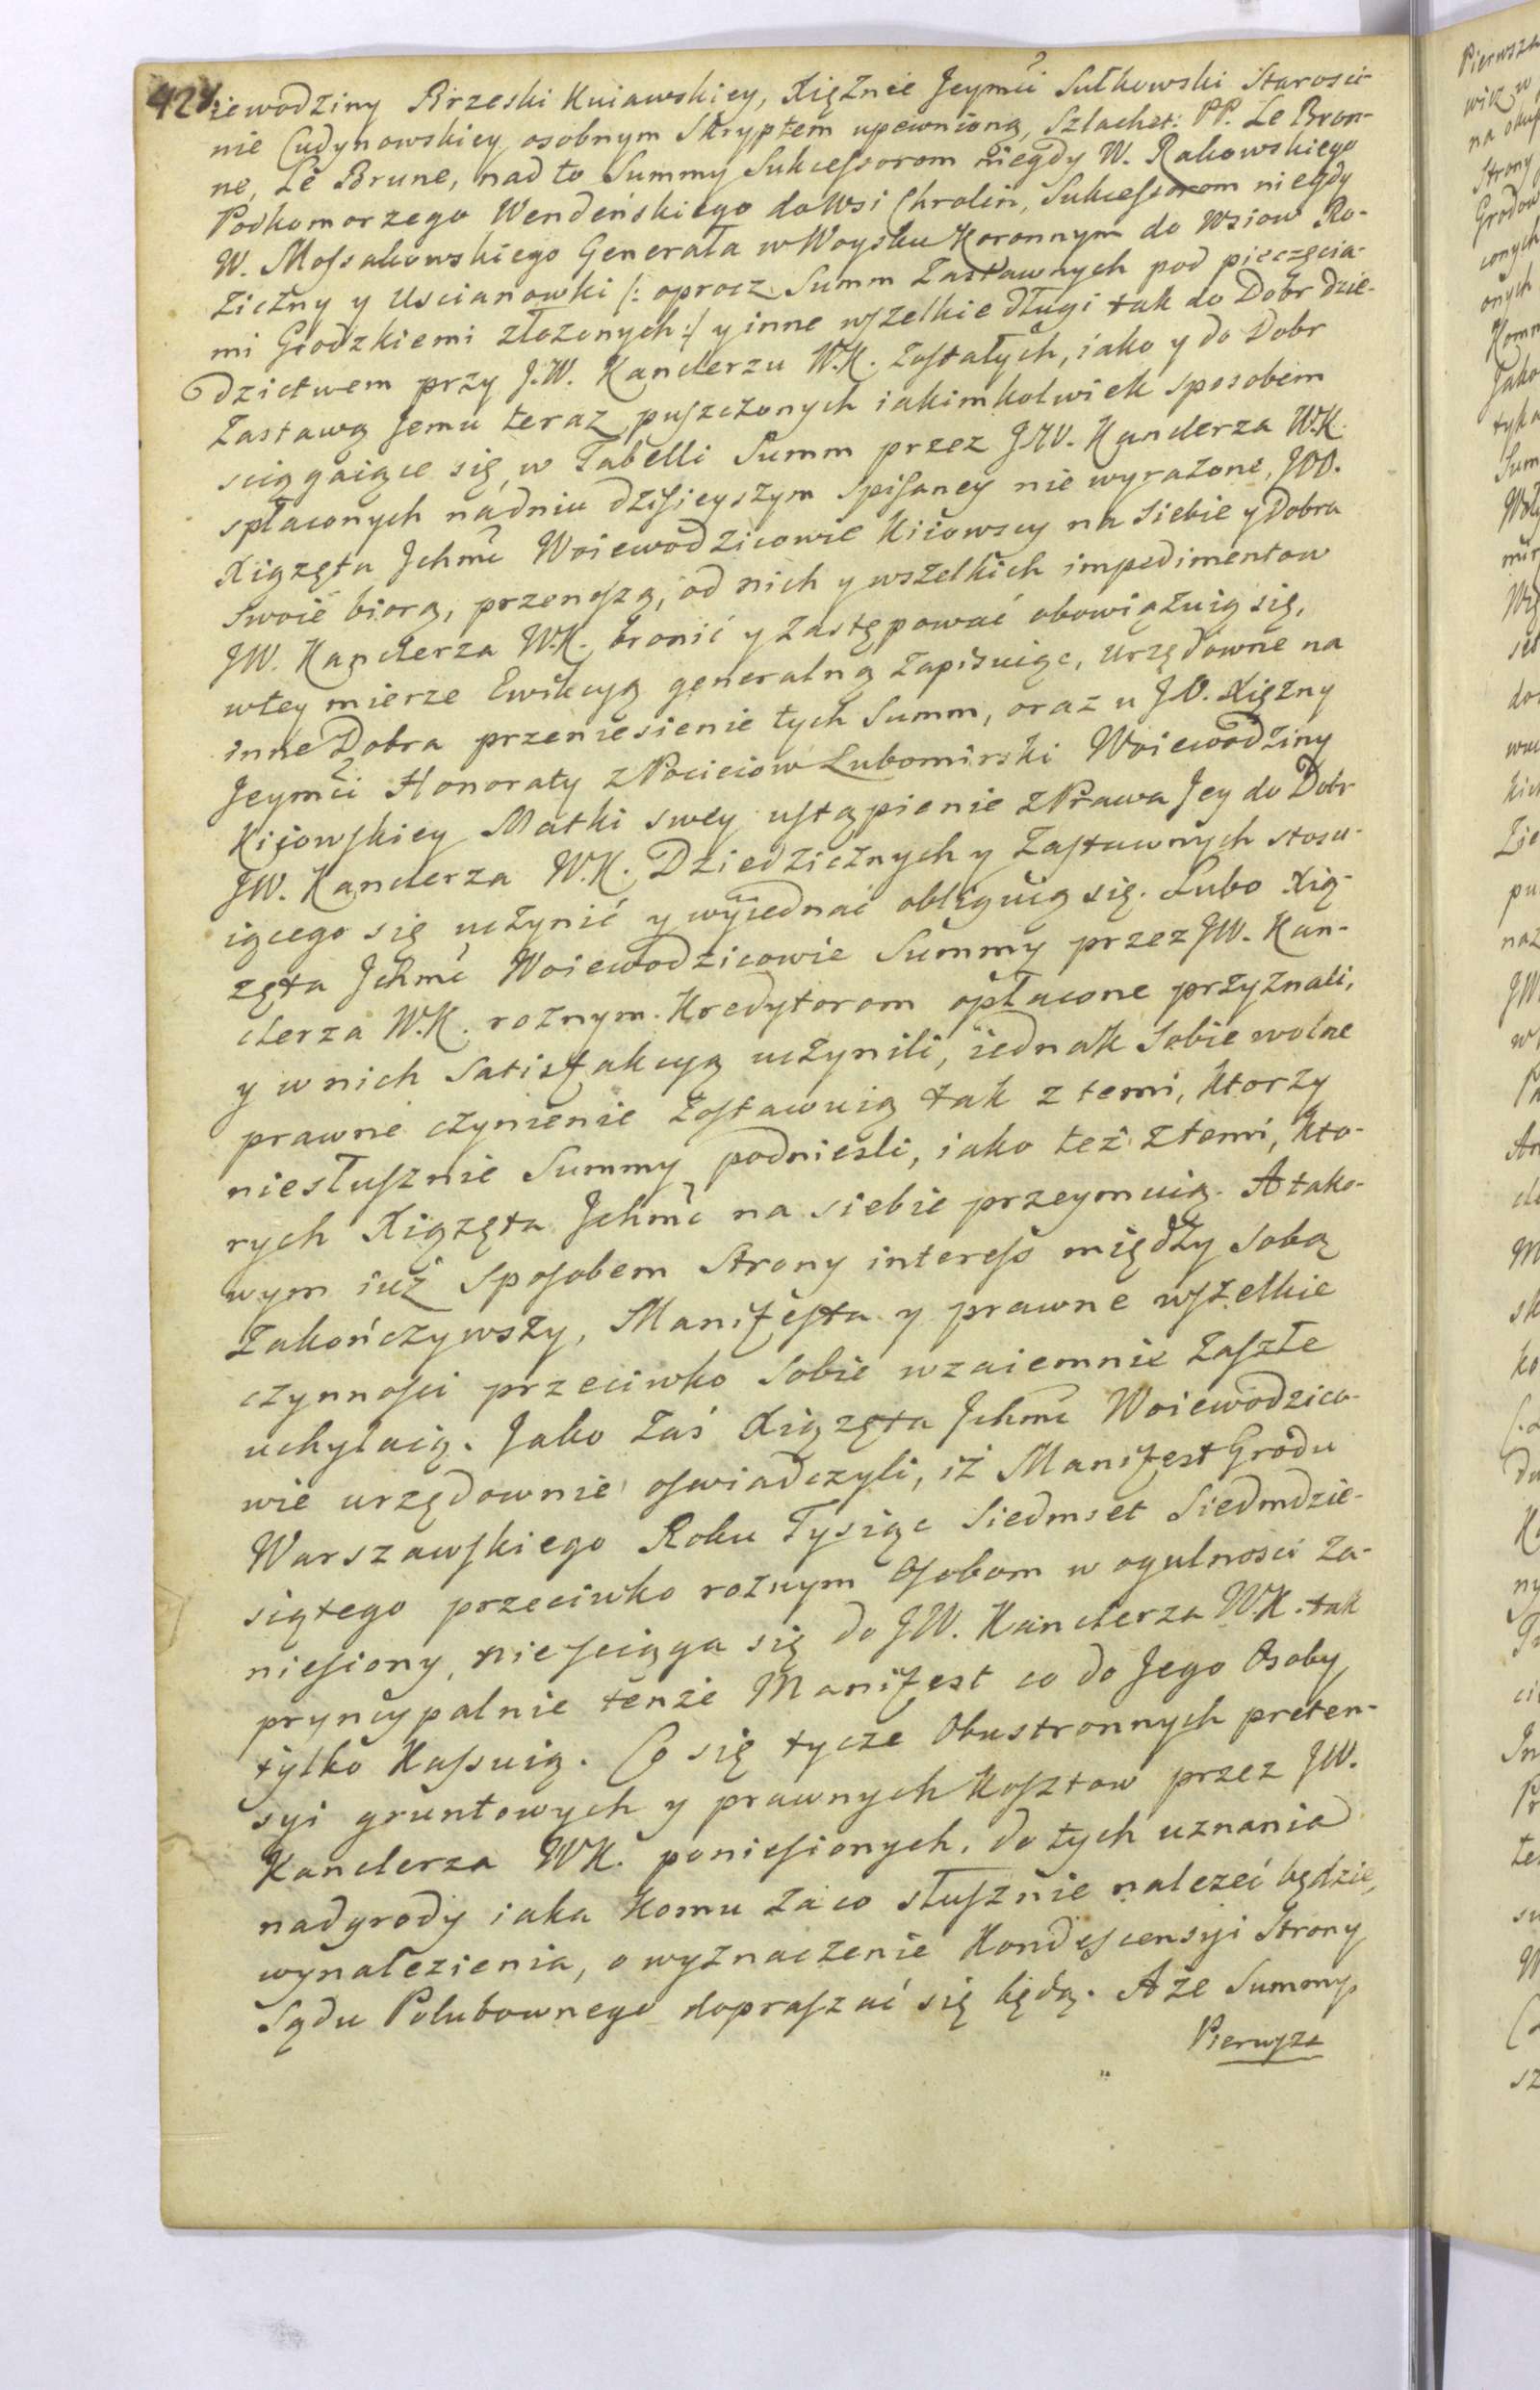 424
iewodziny Brzeski Kuiawskiey, Xiężnie Jeymći Sułkowski Starosci-
nie Cudynowskiey osobnym Skryptem upewnioną, Szlachet: PP. Le Bron-
ne, Le Brune, nad to Summy Sukcessorom niegdy W. Rakowskiego
Podkomorzego Wendeńskiego do Wsi Chrolin, Sukcessorom niegdy
W. Mossakowskiego Generała w Woysku Koronnym do Wsiow Ro-
ziczny y Uscianowki /: oprocz Summ Zastawnych pod pieczęcia-
mi Grodzkiemi złozonych :/ y inne wszelkie długi tak do Dobr dzie-
dzictwem przy J.W. Kanclerzu W.K. zostałych, iako y do Dobr
Zastawą Jemu teraz puszczonych iakimkolwiek sposobem
sciągaiące się, w Tabelli Summ przez JW. Kanclerza W.K.
spłaconych na dniu dzisieyszym spisaney nie wyrażone, JOO.
Xiążęta Jchmć Woiewodzicowie Kiiowscy na siebie y Dobra
swoie biorą, przenoszą, od nich y wszelkich impedimentow
JW. Kanclerza W.K. bronić y zastępować obowiązuią się,
w tey mierze Ewikcyą generalną zapisuiąc, urzędowne na
inne Dobra przeniesienie tych Summ, oraz u J.O. Xiężny
Jeymći Honoraty z Pociejow Lubomirski Woiewodziny
Kiiowskiey Matki swey ustąpienie z Prawa Jey do Dobr
JW. Kanclerza W.K. Dziedzicznych y Zastawnych stosu-
iącego się uczynić y wyiednać obliguią się. Lubo Xią-
żęta Jchmć Woiewodzicowie Summy przez JW. Kan-
clerza W.K. roznym Kredytorom opłacone przyznali,
y w nich Satisfakcyą uczynili, iednak sobie wolne
prawne czynienie zostawuią tak z temi, ktorzy
niesłusznie Summy podniesli, iako też z temi, kto-
rych Xiążęta Jchmć na siebie przeymuią. A tako-
wym iuż sposobem Strony interess między sobą
zakończywszy, Manifesta y prawne wszelkie
czynnosci przeciwko sobie wzaiemnie zaszłe
uchylaią. Jako zaś Xiążęta Jchmć Woiewodzico-
wie urzędownie oswiadczyli, iż Manifest Grodu
Warszawskiego Roku Tysiąc Siedmset Siedmdzie-
siątego przeciwko roznym Osobom w ogulnosci za-
niesiony, nie sciąga się do JW. Kanclerza W.K. tak
pryncypalnie tenże Manifest co do Jego Osoby
tylko Kassuią. Co się tycze Obustronnych preten-
syi gruntowych y prawnych Kosztow przez JW.
Kanclerza WK. poniesionych, do tych uznania
nadgrody iaka Komu za co słusznie nalezeć będzie,
wynalezienia, o wyznaczenie Kondescensyi Strony
Sądu Polubownego dopraszać się będą. A że Summy
Pierwsza